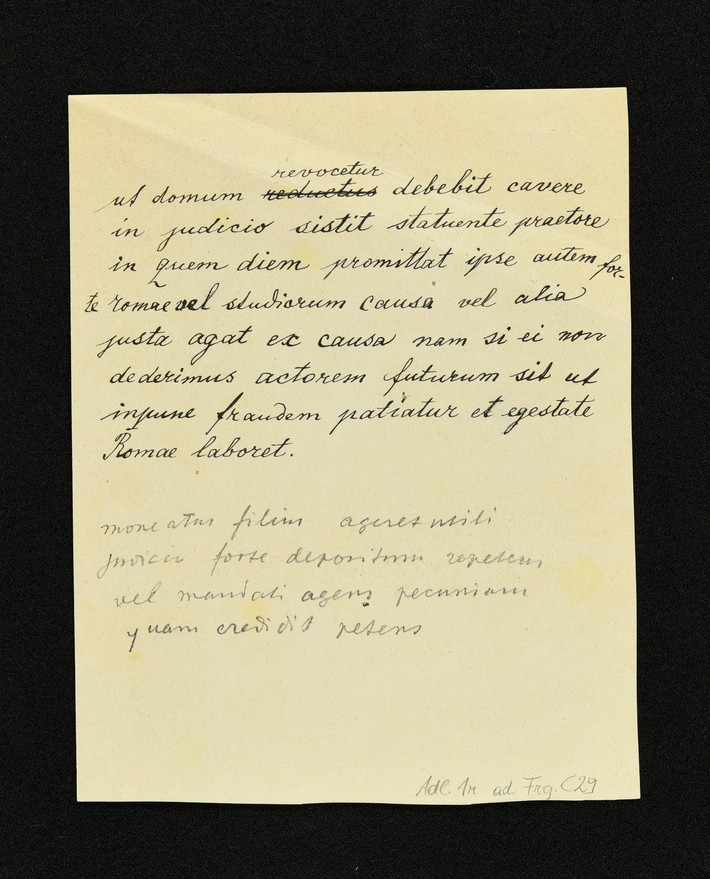 revocetur
ut domum reductus debebit cavere
in judicio sistit statuente praetore
in quem diem promittat ipse autem for-
te romae vel studiorum causa vel alia
justa agat ex causa nam si ei non
dederimus actorem futurum sit ut
inpune fraudem patiatur et egestate
Romae laboret.
moneatur filius ageret utili
judicio forte depositum repetens
vel mandati agens pecuniam
quam credidit petens
Adl. 1r ad Frg. C29